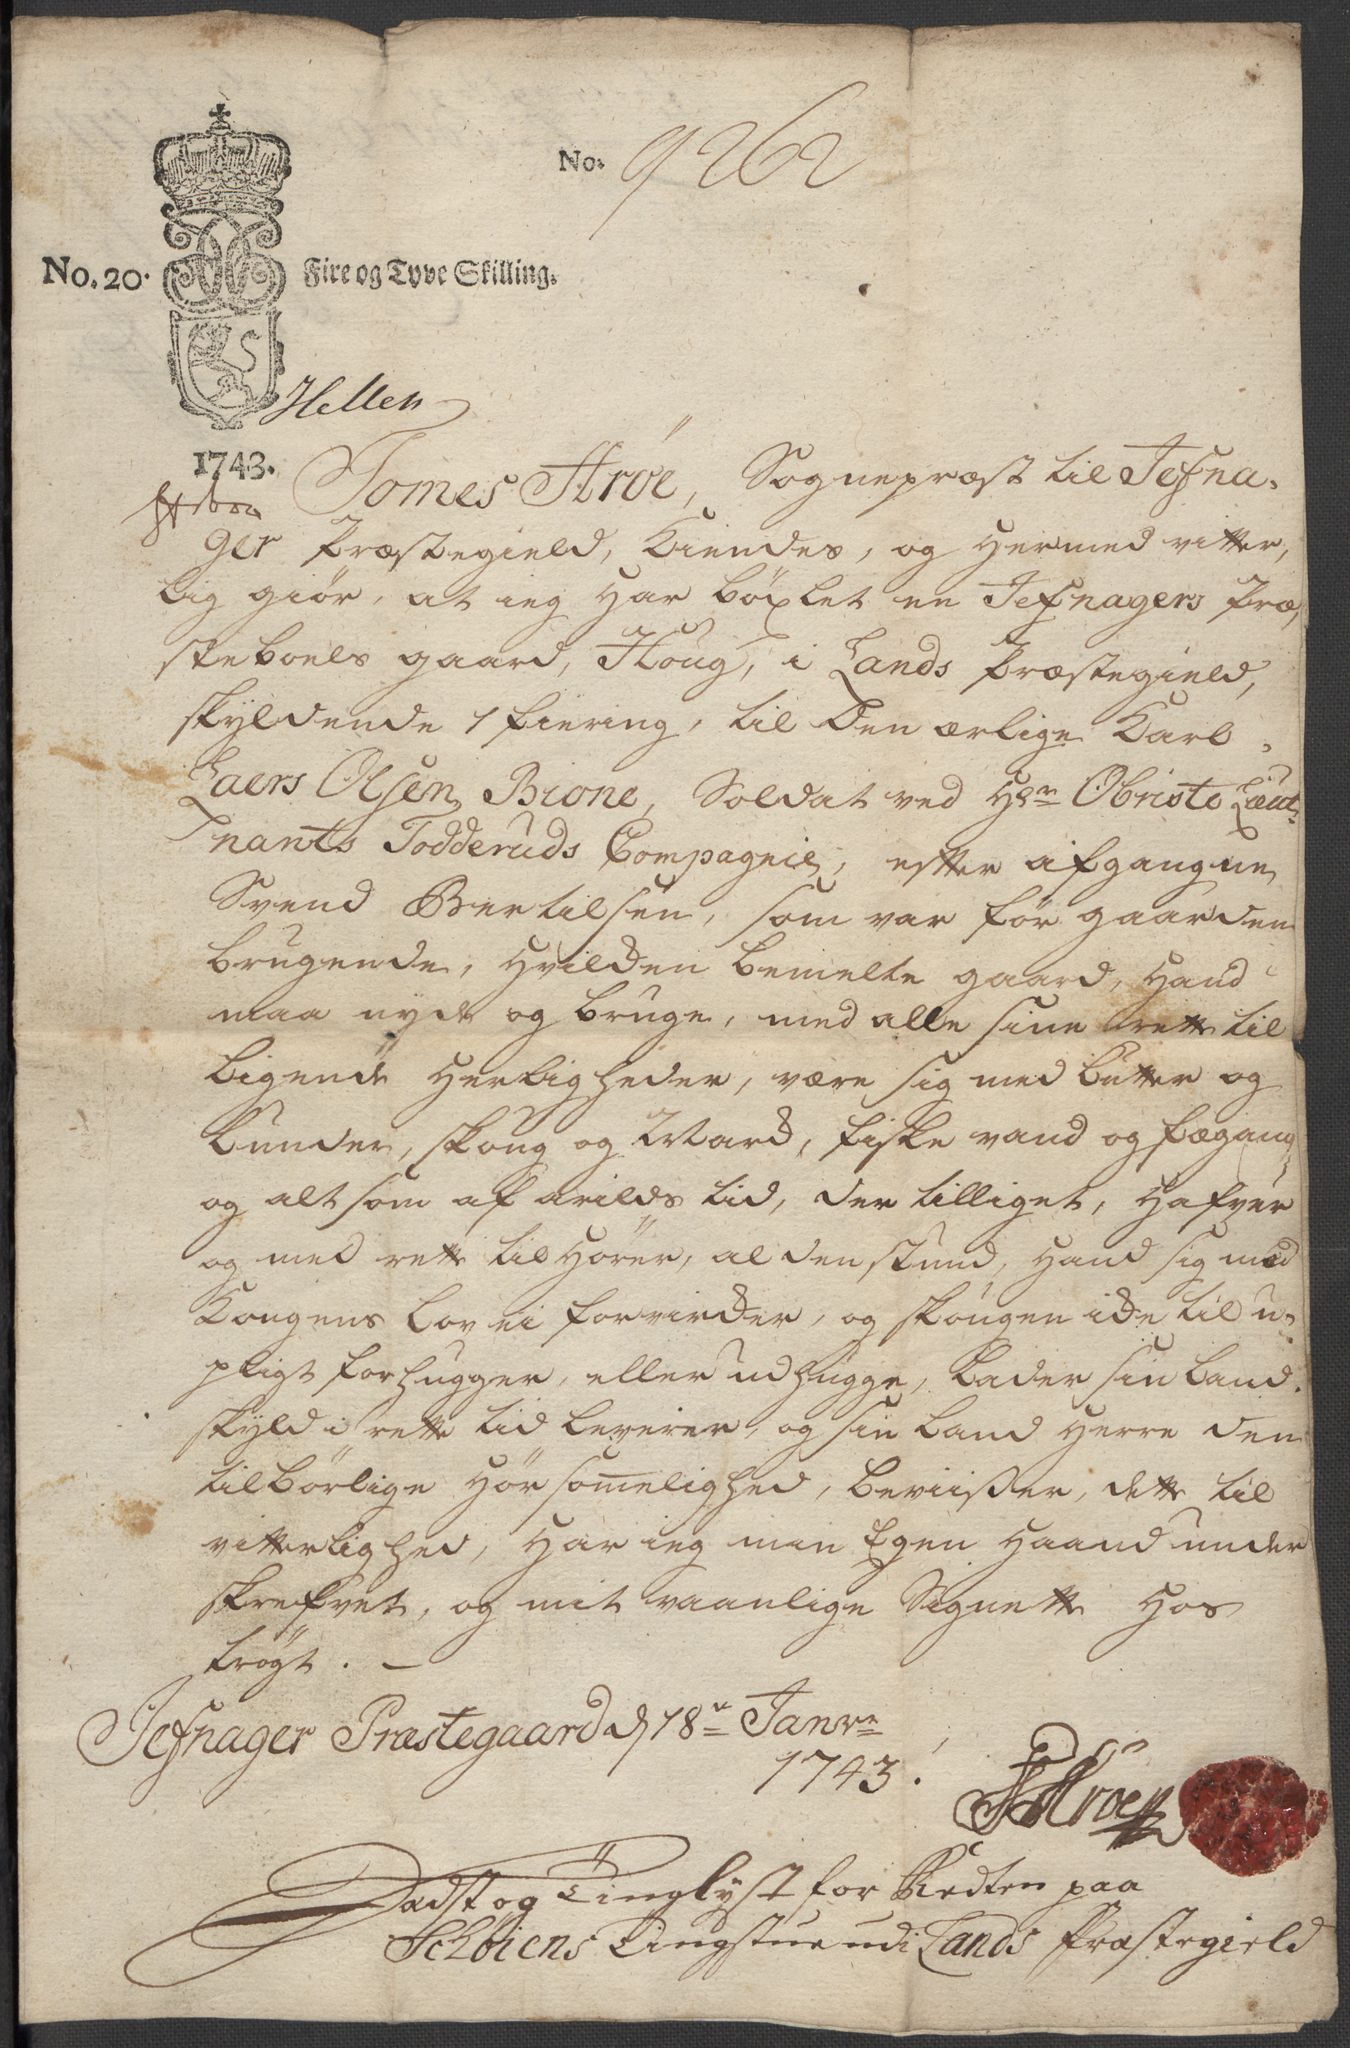 No. 9262
No. 20. Fire og Tyve Skilling.
Hellen
1743.
Tomes Aröe, Sognepræst til Jefna,
ger Præstegield, Kiendes, og Hermed vitter,
lig giör, at ieg Har böxlet en Jefnagers Præ,
steboels gaard, Houg, i Lands Præstegield,
skyldende 1 fiering, til Den ærlige Karl,
Laers Olsen Bione, Soldat ved Hrn Obriste Lieut,
nants Todderuds Compagnie, efter afgangne
Svend Bertilsen, som var för gaarden
brugende, Hvilcken bemelte gaard, Hand
maa nyde og bruge, med alle sine rette til
ligende Herligheder, være sig med lutter og
lunder, skoug og Mard, fiske vand og fægang
og alt som af arilds tid, der tilliget, Hafver
og med rette til Hörer, al den stund, Hand sig med
Kongens Lov ei forvircker, og skougen icke til u,
pligt forhugger, eller udhugge, Lader sin Land,
skyld i rette tid leverer, og sin Land Herre den
tilbörlige Hörsomelighed, beviiser, dette til
vitterlighed, Har ieg min Egen Haand under
skrefvet, og mit vaanlige Signette Hos
trögt. —
Jefnager Præstegaard d 18n Janvr
1743.
T Aröe
Lædst og Tinglyst for Retten paa
Schöiens Tingstue udi Lands Præstegield